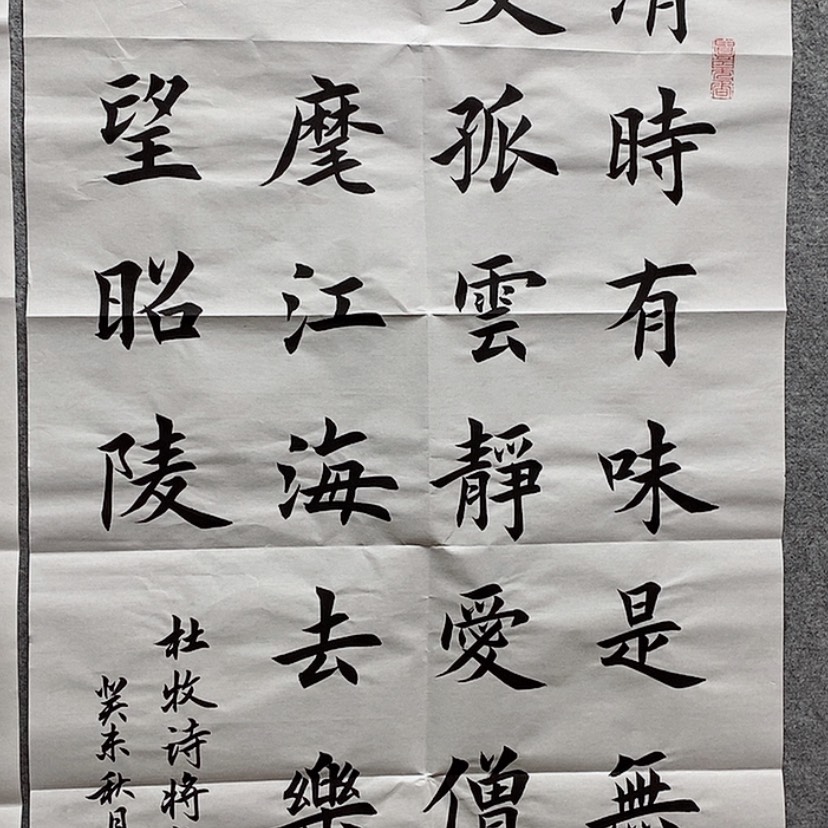 清時有味是無
愛孤雲靜愛僧
麾江海去樂
望昭陵
杜牧诗将
癸未秋月